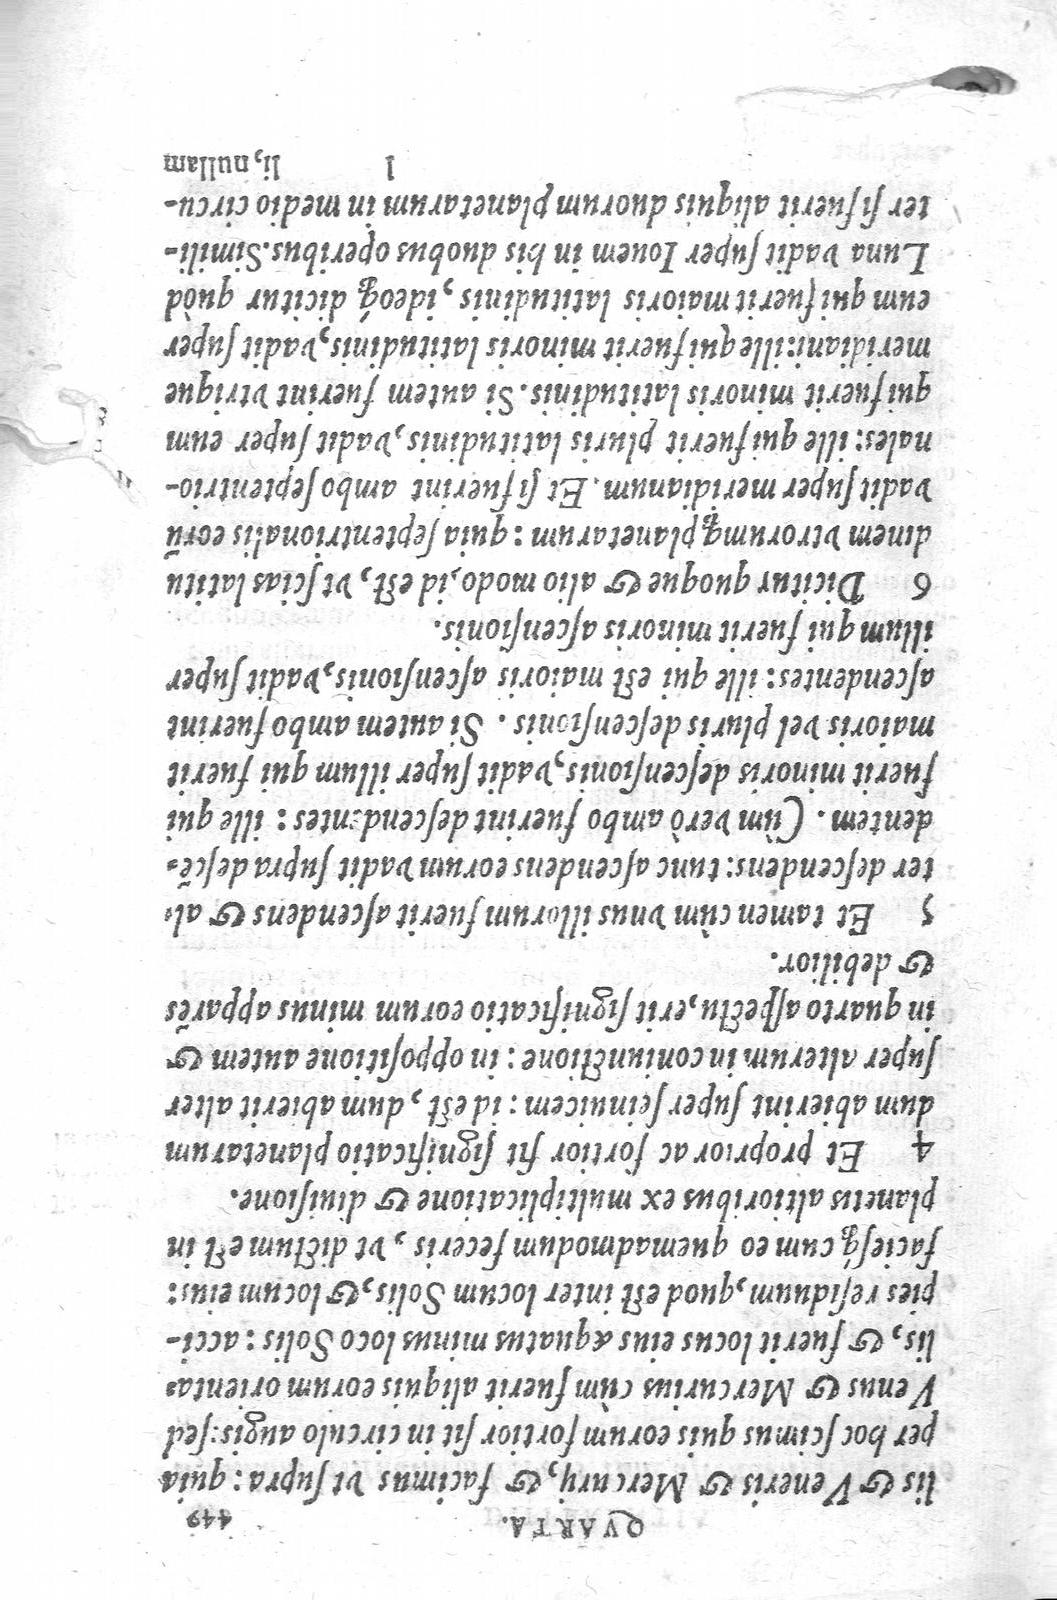 QVARTA. 449
lis & Veneris & Mercurij, & facimus vt supra: quia
per hoc scimus quis eorum fortior sit in circulo augis: sed
Venus & Mercurius cùm fuerit aliquis eorum orienta-
lis, & fuerit locus eius æquatus minus loco Solis: acci-
pies residuum, quod est inter locum Solis, & locum eius:
faciesq́ cum eo quemadmodum feceris, vt dictum est in
planetis altioribus ex multiplicatione & diuisione.
4 Et proprior ac fortior fit significatio planetarum
dum abierint super seinuicem: id est, dum abierit alter
super alterum in coniunctione: in oppositione autem &
in quarto aspectu, erit significatio eorum minus apparēs
& debilior.
5 Et tamen cùm vnus illorum fuerit ascendens & al-
ter descendens: tunc ascendens eorum vadit supra descē-
dentem. Cùm verò ambo fuerint descendentes: ille qui
fuerit minoris descensionis, vadit super illum qui fuerit
maioris vel pluris descensionis. Si autem ambo fuerint
ascendentes: ille qui est maioris ascensionis, vadit super
illum qui fuerit minoris ascensionis.
6 Dicitur quoque & alio modo, id est, vt scias latitu
dinem vtrorumq́ planetarum: quia septentrionalis eorū
vadit super meridianum. Et si fuerint ambo septentrio-
nales: ille qui fuerit pluris latitudinis, vadit super eum
qui fuerit minoris latitudinis. Si autem fuerint vtrique
meridiani: ille qui fuerit minoris latitudinis, vadit super
eum qui fuerit maioris latitudinis, ideoq́ dicitur quòd
Luna vadit super Iouem in his duobus operibus. Simili-
ter si fuerit aliquis duorum planetarum in medio circu-
l li, nullam